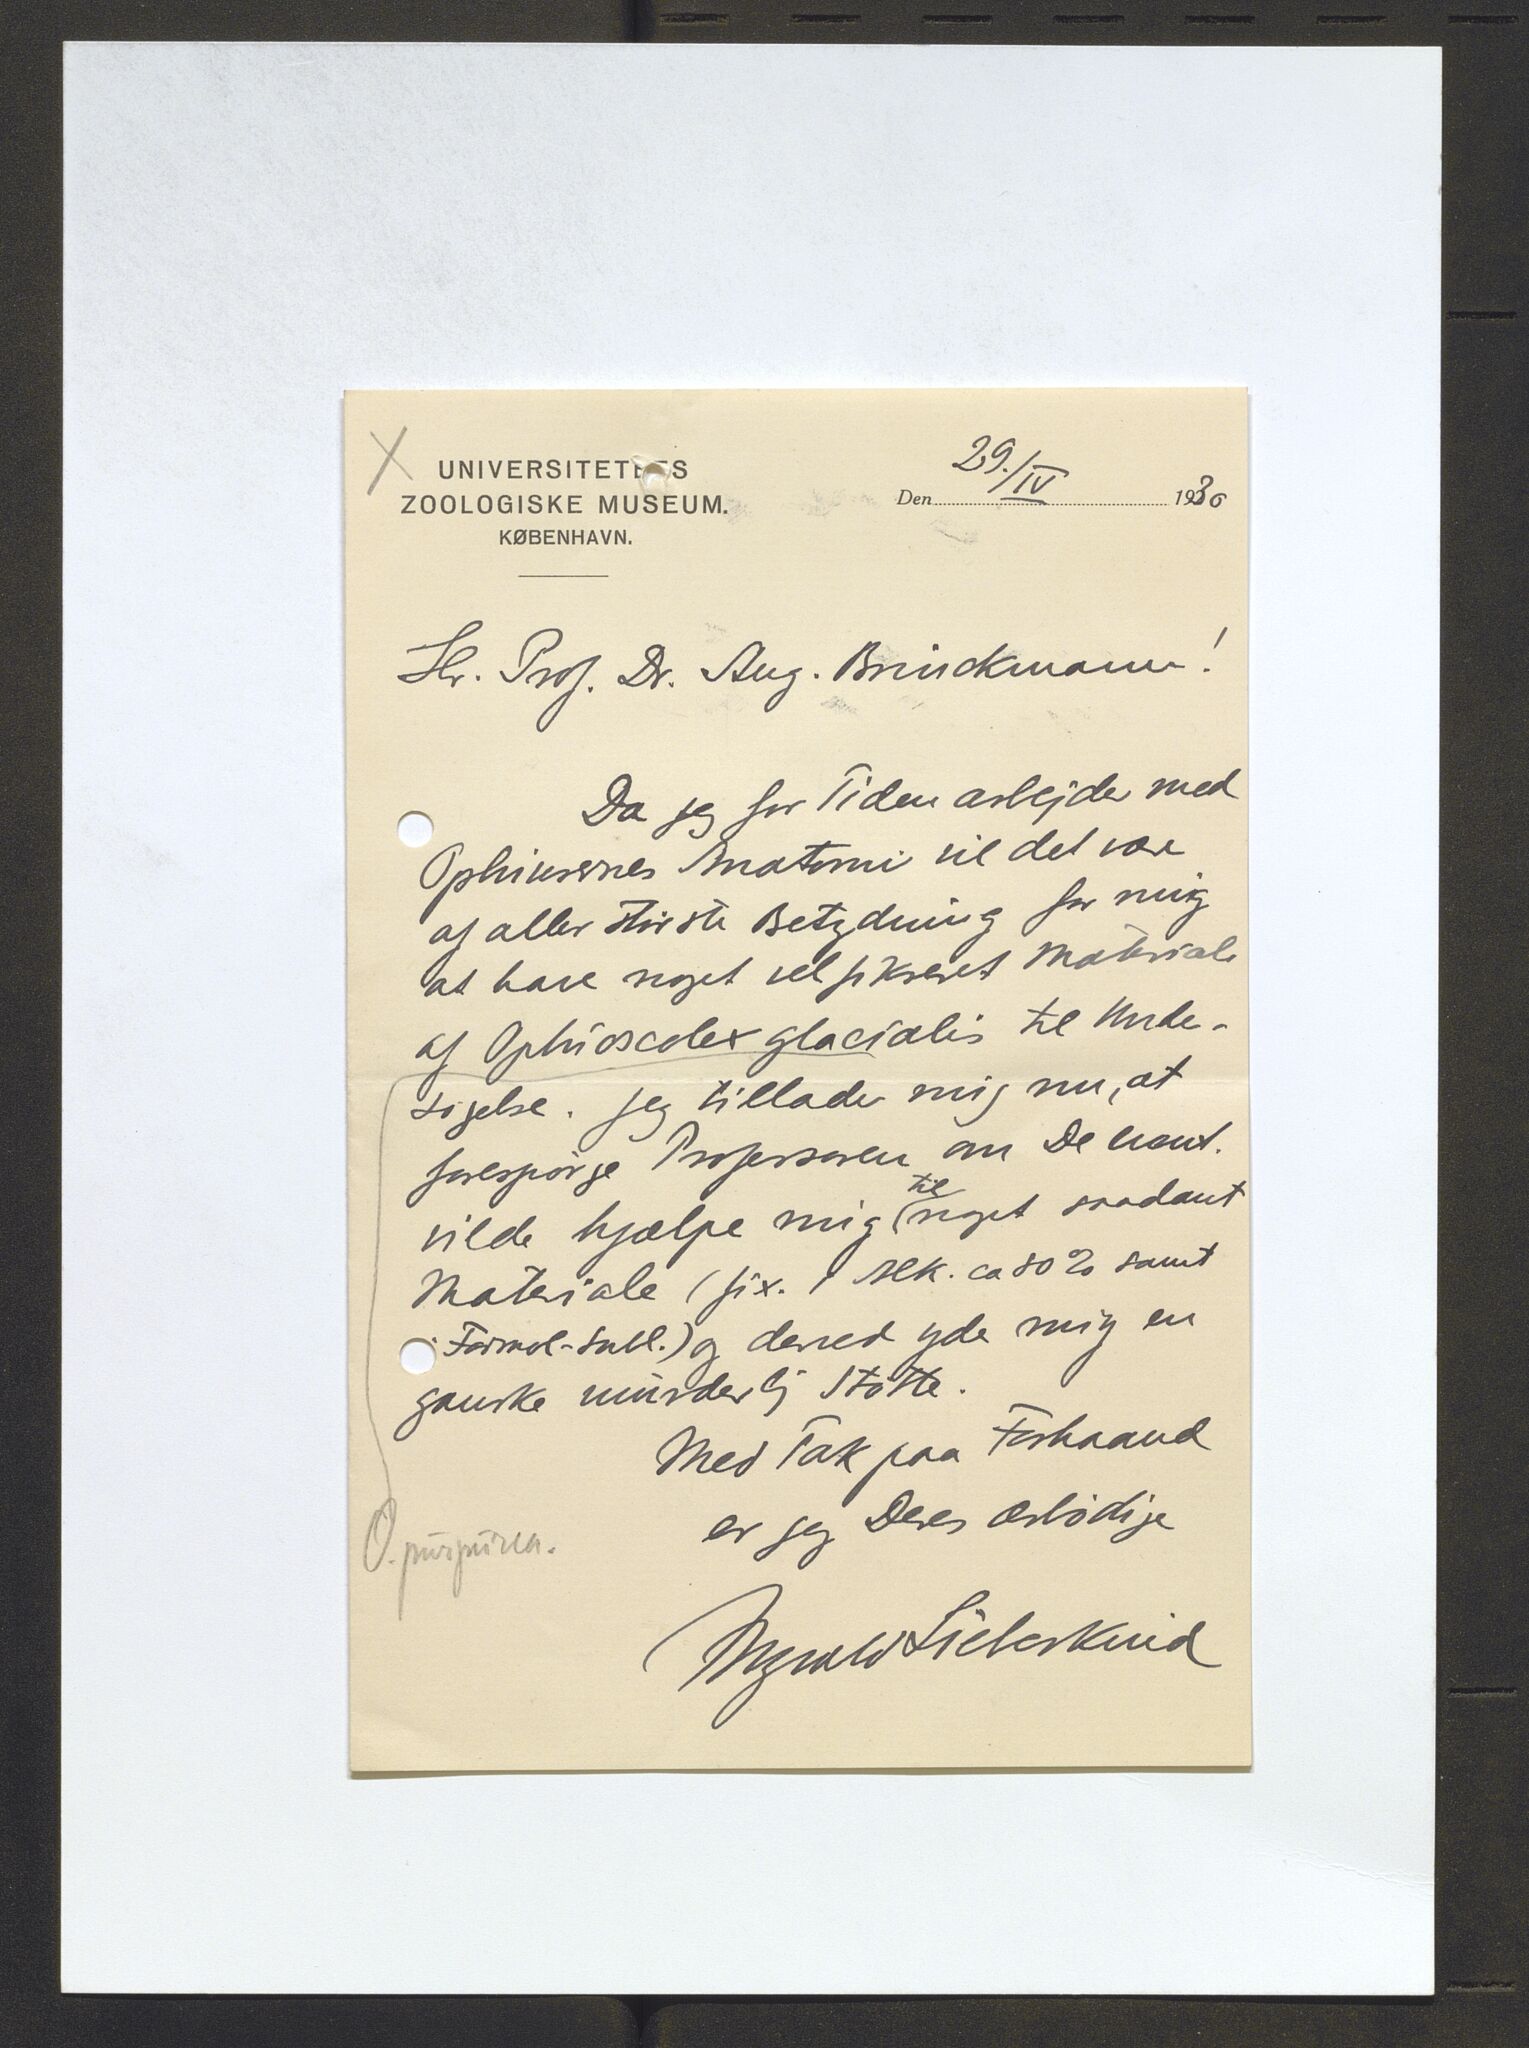 X
UNIVERSITETETS
ZOOLOGISKE MUSEUM.
KØBENHAVN.
Den 29./IV 1930
Hr. Prof. Dr. Aug. Brinckmann!
Da jeg for Tiden arbejder med
Ophiurernes Anatomi vil det være
af aller største Betydning for mig
at have noget vel fikseret Materiale
af Ophioscolex glacialis til Unde-
søgelse. Jeg tillader mig nu, at
forespørge Professoren om De event.
vilde hjælpe mig til noget saadant
Materiale (fix. i Alk. ca 80% samt
Formol-Subl.) og derved yde mig en
ganske vurderlig Støtte.
Med Tak paa Forhaand
er jeg Deres ærbødige
O. purpurea.
Ingvald Lieberkind